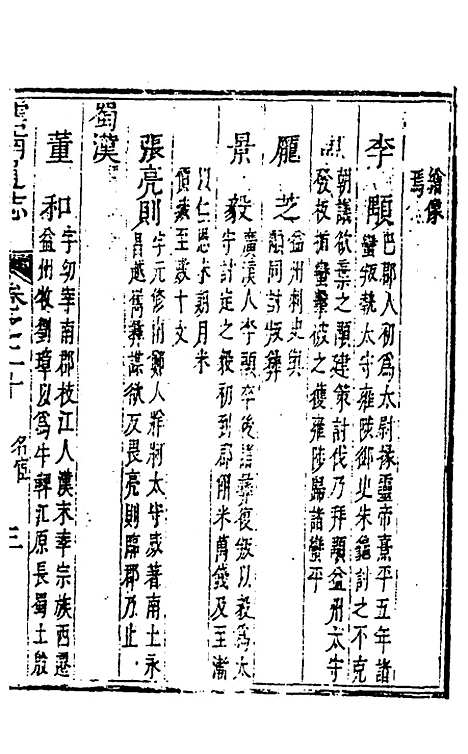 繪像
焉
李顒 巴郡人初爲太尉掾靈帝熹平五年諸
蠻叛執太守雍陟御史朱龜討之不克
朝議欲棄之顒建策討伐乃拜顒益州太守
發板楯蠻擊破之復雍陟歸諸蠻平
龐芝 益州刺史與
顒同討叛彝
景毅 廣漢人李顒卒後諸彝復叛以毅爲太
守討定之毅初到郡斛米萬錢及至漸
以仁恩未朞月米
價歲至數十文
張亮則 字元修南鄭人牂牁太守威著南土永
昌越嶲彝謀欲反畏亮則臨郡乃止
蜀漢
董和 字幼宰南郡枝江人漢末率宗族西遷
益州牧劉璋以爲牛鞞江原長蜀土殷
雲南通志
卷之二十
名宦
三